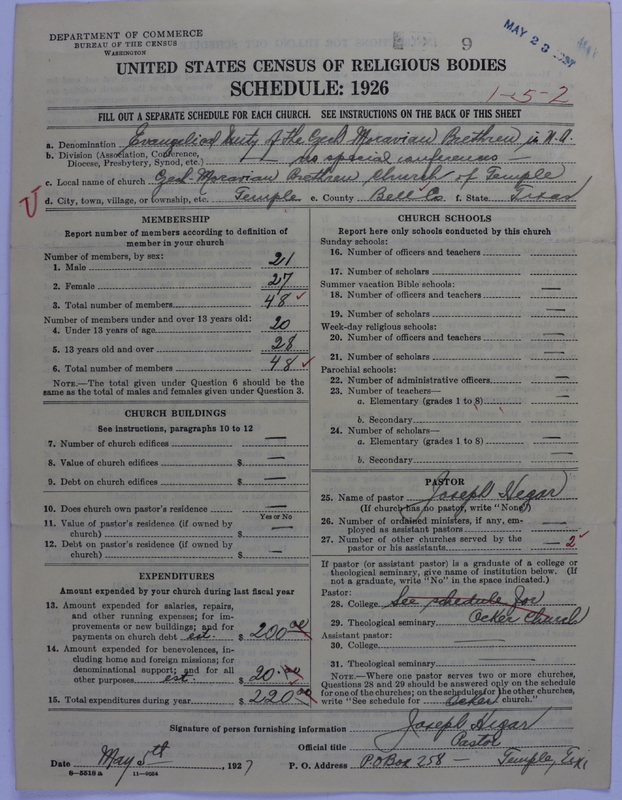 DEPARTMENT OF COMMERCE
BUREAU OF THE CENSUS
WASHINGTON
9
MAY 23 1927
UNITED STATES CENSUS OF RELIGIOUS BODIES
SCHEDULE: 1926
1-5-2
FILL OUT A SEPARATE SCHEDULE FOR EACH CHURCH. SEE INSTRUCTIONS ON THE BACK OF THIS SHEET
a. Denomination Evangelical Unity of the Czech Moravian Brethren in N.A.
b. Division (Association, Conference, Diocese, Presbytery, Synod, etc.) no special conferences
c. Local name of church Czech-Moravian Brethren Church of Temple
d. City, town, village, or township, etc. Temple e. County Bell Co. f. State Texas
MEMBERSHIP
Report number of members according to definition of
member in your church
Number of members, by sex:
1. Male 21
2. Female 27
3. Total number of members 48
Number of members under and over 13 years old:
4. Under 13 years of age 20
5. 13 years old and over 28
6. Total number of members 48
NOTE.—The total given under Question 6 should be
same as the total of males and females given under Question 3.
CHURCH BUILDINGS
See instructions, paragraphs 10 to 12
7. Number of church edifices —
8. Value of church edifices $ —
9. Debt on church edifices $ —
10. Does church own pastor's residence —
Yes or No
11. Value of pastor's residence (if owned by
church) $ —
12. Debt on pastor's residence (if owned by
church) $ —
EXPENDITURES
Amount expended by your church during last fiscal year
13. Amount expended for salaries, repairs,
and other running expenses; for im-
provements or new buildings; and for
payments on church debt est. $ 200.00
14. Amount expended for benevolences, in-
cluding home and foreign missions; for
denominational support; and for all
other purposes est. $ 20.00
15. Total expenditures during year $ 220.00
CHURCH SCHOOLS
Report here only schools conducted by this church
Sunday schools:
16. Number of officers and teachers
17. Number of scholars —
Summer vacation Bible schools:
18. Number of officers and teachers —
19. Number of scholars —
Week-day religious schools:
20. Number of officers and teachers —
21. Number of scholars —
Parochial schools:
22. Number of administrative officers —
23. Number of teachers—
a. Elementary (grades 1 to 8) —
b. Secondary
24. Number of scholars—
a. Elementary (grades 1 to 8) —
b. Secondary —
PASTOR
25. Name of pastor Joseph Hegar
(If church has no pastor, write "None")
26. Number of ordained ministers, if any, em-
ployed as assistant pastors —
27. Number of other churches served by the
pastor or his assistants — 2
If pastor (or assistant pastor) is a graduate of a college or
theological seminary, give name of institution below. (If
not a graduate, write "No" in the space indicated.)
Pastor:
28. College See schedule for
29. Theological seminary Ocker Church
Assistant pastor:
30. College —
31. Theological seminary —
NOTE.—Where one pastor serves two or more churches,
Questions 28 and 29 should be answered only on the schedule
for one of the churches; on the schedules for the other churches,
write "See schedule for Ocker church."
Signature of person furnishing information Joseph Hegar
Official title Pastor
Date May 5th, 1927 P. O. Address P.O Box 258 — Temple, Tex.
8-5518 a 11-9054